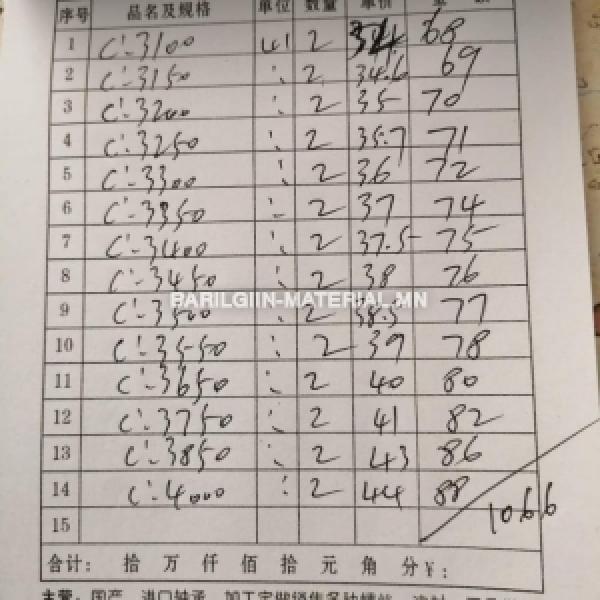 序号 品名及规格 单位 数量 单价 金 额
1 C-3100 2 34 68
2 C-3150 2 34.6 69
3 C-3200 2 35 70
4 C-3250 2 35.7 71
5 C-3300 2 36 72
6 C-3350 2 37 74
7 C-3400 2 37.5 75
8 C-3450 2 38 76
9 C-3500 2 38.5 77
10 C-3550 2 39 78
11 C-3650 2 40 80
12 C-3750 2 41 82
13 C-3850 2 43 86
14 C-4000 2 44 88
15 1066
合计: 拾 万 仟 佰 拾 元 角 分 ¥:
主营: 国产、进口轴承
BARILGIIN-MATERIAL.MN